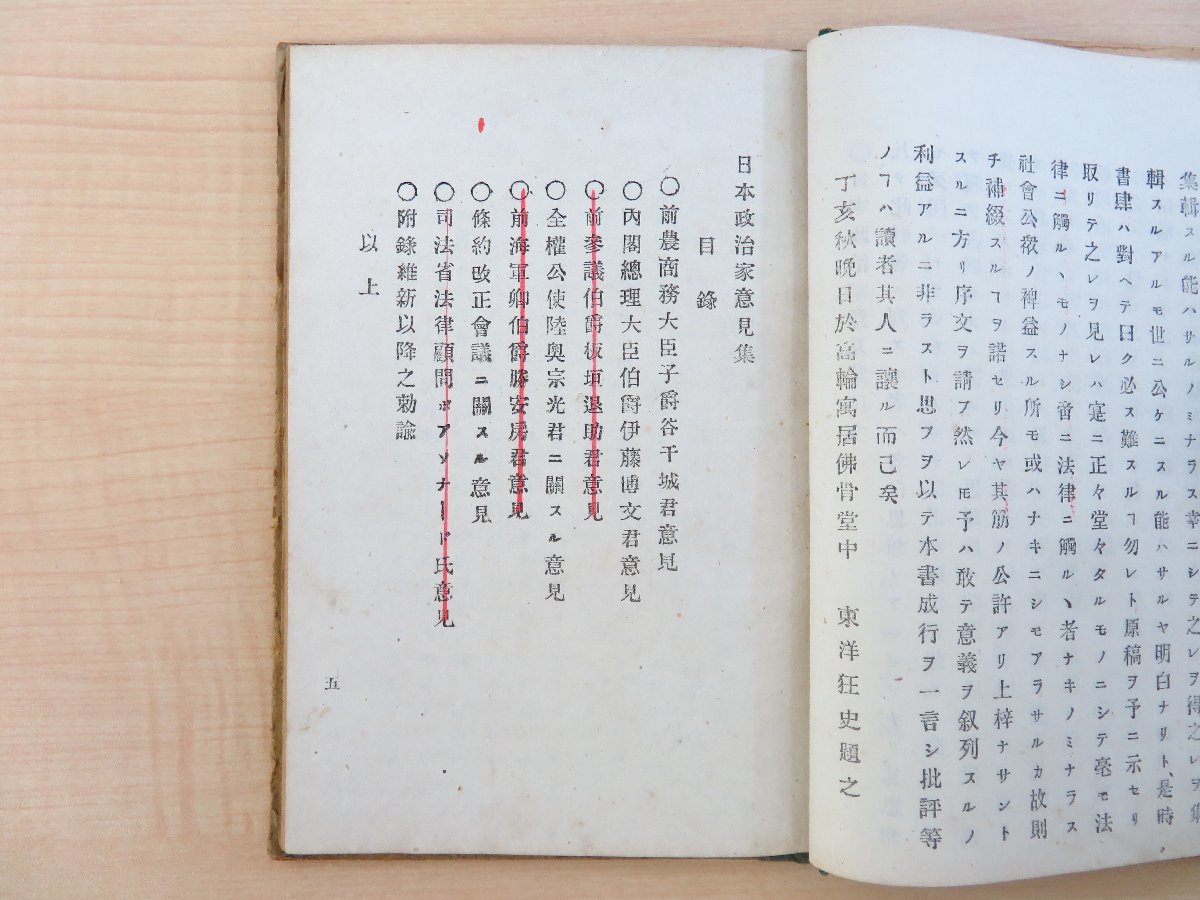 集輯スル能ハサルノミナラス幸ニシテ之レヲ得之レヲ集
輯スルアルモ世ニ公ケニスル能ハサルヤ明白ナリト、是時
書肆ハ對ヘテ曰ク必ス難スルヿ勿レト原稿ヲ予ニ示セリ
取リテ之レヲ見レハ寔ニ正々堂々タルモノニシテ毫モ法
律ニ觸ルヽモノナシ啻ニ法律ニ觸ルヽ者ナキノミナラス
社會公衆ノ裨益スル所モ或ハナキニシモアラサルカ故則
チ補綴スルヿヲ諾セリ今ヤ其筋ノ公許アリ上梓ナサント
スルニ方リ序文ヲ請フ然レ𪜈予ハ敢テ意義ヲ叙列スルノ
利益アルニ非ラスト思フヲ以テ本書成行ヲ一言シ批評等
ノヿハ讀者其人ニ讓ル而已矣
丁亥秋晩日於高輪寓居佛骨堂中 東洋狂史題之
日本政治家意見集
目錄
○前農商務大臣子爵谷干城君意見
○內閣總理大臣伯爵伊藤博文君意見
○前參議伯爵板垣退助君意見
○全權公使陸奧宗光君ニ關スル意見
○前海軍卿伯爵勝安房君意見
○條約改正會議ニ關スル意見
○司法省法律顧問ボアソナード氏意見
○附錄維新以降之勅諭
以上
五